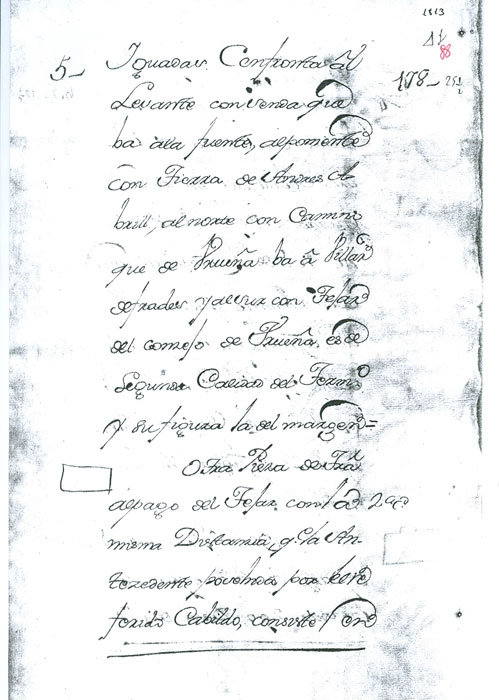 1813
11
88
5_ Yguadas. Confronta al
178_ 251
Levante con senda que
ba ala fuente, alponiente
con Tierra de Andres A
brill, alnorte con Camino
que de Prueña ba â Villar
defrades yalsur con Tejar
del conzejo de Prueña, es de
Segunda Calidad del Termo
y su figura la del margen=
Otra Pieza de Tra
alpago del Tejar, con la
misma Distancia, q. la An
tezedente, posehida por
forido Cabildo, consiste